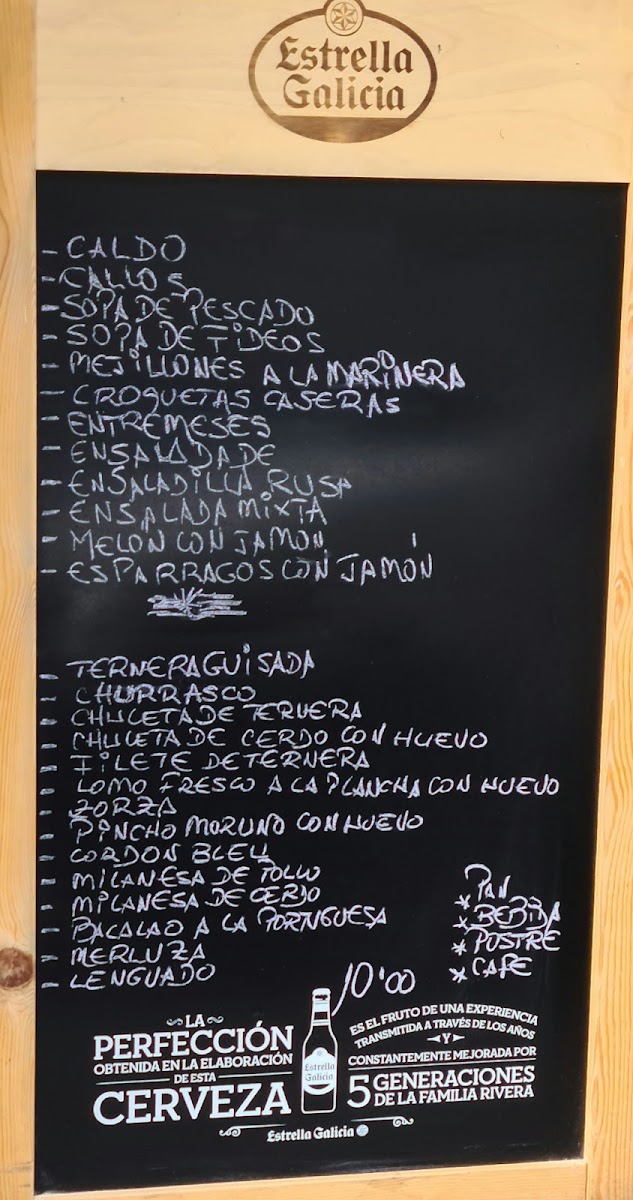 Estrella
Galicia
- CALDO
- CALLOS
- SOPA DE PESCADO
- SOPA DE FIDEOS
- MEJILLONES A LA MARINERA
- CROQUETAS CASERAS
- ENTREMESES
- ENSALADA DE
- ENSALADILLA RUSA
- ENSALADA MIXTA
- MELON CON JAMON
- ESPARRAGOS CON JAMÓN
- TERNERA GUISADA
- CHURRASCO
- CHULETA DE TERNERA
- CHULETA DE CERDO CON HUEVO
- FILETE DE TERNERA
- LOMO FRESCO A LA PLANCHA CON HUEVO
- ZORZA
- PINCHO MORUNO CON HUEVO
- CORDON BLEU
- MILANESA DE POLLO
- MILANESA DE CERDO
- BACALAO A LA PORTUGUESA
- MERLUZA
- LENGUADO
* PAN
* BEBIDA
* POSTRE
* CAFE
10'00
LA
PERFECCIÓN
OBTENIDA EN LA ELABORACIÓN
DE ESTA
CERVEZA
Estrella
Galicia
ES EL FRUTO DE UNA EXPERIENCIA
TRANSMITIDA A TRAVÉS DE LOS AÑOS
Y
CONSTANTEMENTE MEJORADA POR
5 GENERACIONES
DE LA FAMILIA RIVERA
Estrella Galicia